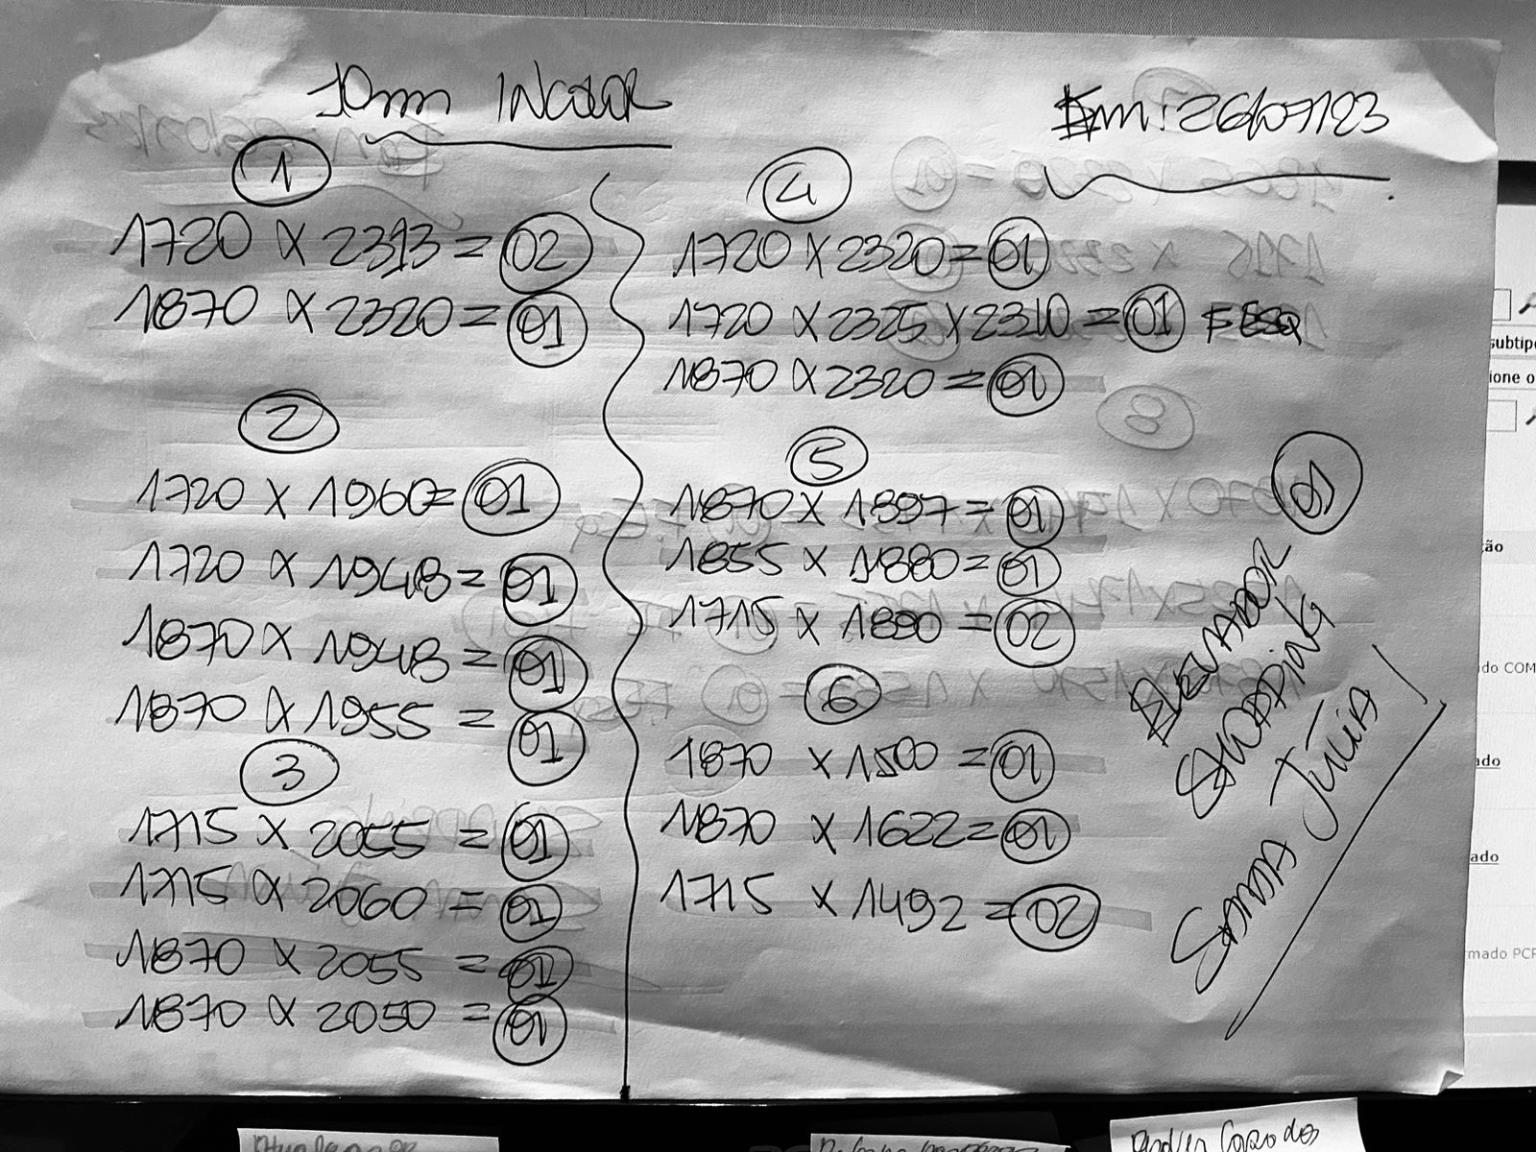 10mm INCOLOR
Em: 26/07/23
1
1720 X 2313 = 02
1870 X 2320 = 01
2
1720 X 1960 = 01
1720 X 1948 = 01
1870 X 1948 = 01
1870 X 1955 = 01
3
1715 X 2055 = 01
1715 X 2060 = 01
1870 X 2055 = 01
1870 X 2050 = 01
4
1720 X 2320 = 01
1720 X 2325 X 2310 = 01 F ESQ
1870 X 2320 = 01
5
1870 X 1897 = 01
1855 X 1880 = 01
1715 X 1890 = 02
6
1870 X 1500 = 01
1870 X 1622 = 01
1715 X 1492 = 02
ELEVADOR 01
SHOPPING
SANTA JÚLIA
8
subtipo
ione o
ão
do COM
ado
ado
rmado PCP